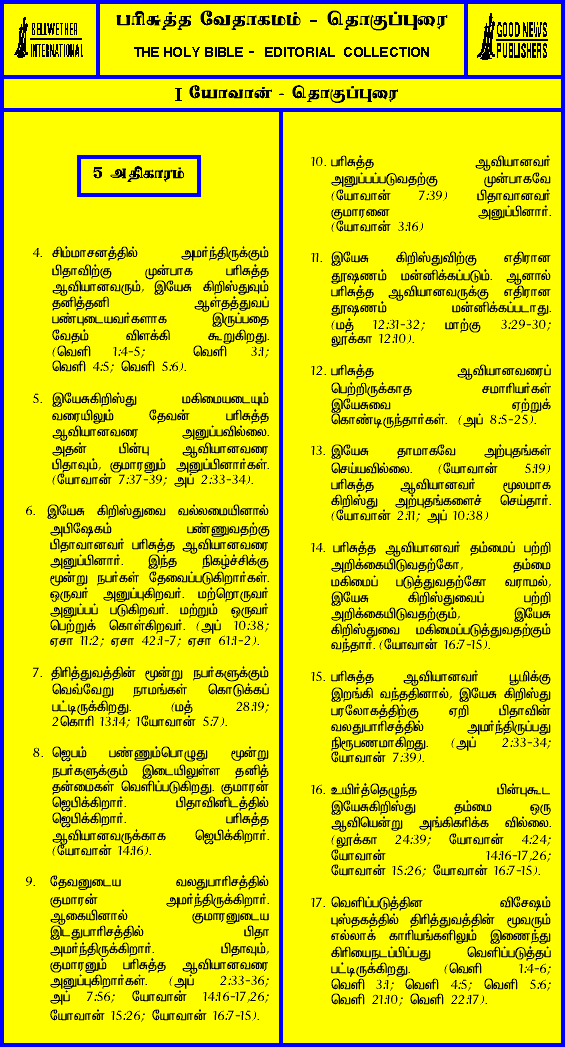 BELLWETHER
INTERNATIONAL
பரிசுத்த வேதாகமம் - தொகுப்புரை
THE HOLY BIBLE - EDITORIAL COLLECTION
GOOD NEWS
PUBLISHERS
I யோவான் - தொகுப்புரை
5 அதிகாரம்
4. சிம்மாசனத்தில் அமர்ந்திருக்கும்
பிதாவிற்கு முன்பாக பரிசுத்த
ஆவியானவரும், இயேசு கிறிஸ்துவும்
தனித்தனி ஆள்தத்துவப்
பண்புடையவர்களாக இருப்பதை
வேதம் விளக்கி கூறுகிறது.
(வெளி 1:4-5; வெளி 3:1;
வெளி 4:5; வெளி 5:6).
5. இயேசுகிறிஸ்து மகிமையடையும்
வரையிலும் தேவன் பரிசுத்த
ஆவியானவரை அனுப்பவில்லை.
அதன் பின்பு ஆவியானவரை
பிதாவும், குமாரனும் அனுப்பினார்கள்.
(யோவான் 7:37-39; அப் 2:33-34).
6. இயேசு கிறிஸ்துவை வல்லமையினால்
அபிஷேகம் பண்ணுவதற்கு
பிதாவானவர் பரிசுத்த ஆவியானவரை
அனுப்பினார். இந்த நிகழ்ச்சிக்கு
மூன்று நபர்கள் தேவைப்படுகிறார்கள்.
ஒருவர் அனுப்புகிறவர். மற்றொருவர்
அனுப்பப் படுகிறவர். மற்றும் ஒருவர்
பெற்றுக் கொள்கிறவர். (அப் 10:38;
ஏசா 11:2; ஏசா 42:1-7; ஏசா 61:1-2).
7. திரித்துவத்தின் மூன்று நபர்களுக்கும்
வெவ்வேறு நாமங்கள் கொடுக்கப்
பட்டிருக்கிறது. (மத் 28:19;
2கொரி 13:14; 1யோவான் 5:7).
8. ஜெபம் பண்ணும்பொழுது மூன்று
நபர்களுக்கும் இடையிலுள்ள தனித்
தன்மைகள் வெளிப்படுகிறது. குமாரன்
ஜெபிக்கிறார். பிதாவினிடத்தில்
ஜெபிக்கிறார். பரிசுத்த
ஆவியானவருக்காக ஜெபிக்கிறார்.
(யோவான் 14:16).
9. தேவனுடைய வலதுபாரிசத்தில்
குமாரன் அமர்ந்திருக்கிறார்.
ஆகையினால் குமாரனுடைய
இடதுபாரிசத்தில் பிதா
அமர்ந்திருக்கிறார். பிதாவும்,
குமாரனும் பரிசுத்த ஆவியானவரை
அனுப்புகிறார்கள். (அப் 2:33-36;
அப் 7:56; யோவான் 14:16-17,26;
யோவான் 15:26; யோவான் 16:7-15).
10. பரிசுத்த ஆவியானவர்
அனுப்பப்படுவதற்கு முன்பாகவே
(யோவான் 7:39) பிதாவானவர்
குமாரனை அனுப்பினார்.
(யோவான் 3:16)
11. இயேசு கிறிஸ்துவிற்கு எதிரான
தூஷணம் மன்னிக்கப்படும். ஆனால்
பரிசுத்த ஆவியானவருக்கு எதிரான
தூஷணம் மன்னிக்கப்படாது.
(மத் 12:31-32; மாற்கு 3:29-30;
லூக்கா 12:10).
12. பரிசுத்த ஆவியானவரைப்
பெற்றிருக்காத சமாரியர்கள்
இயேசுவை ஏற்றுக்
கொண்டிருந்தார்கள். (அப் 8:5-25).
13. இயேசு தாமாகவே அற்புதங்கள்
செய்யவில்லை. (யோவான் 5:19)
பரிசுத்த ஆவியானவர் மூலமாக
கிறிஸ்து அற்புதங்களைச் செய்தார்.
(யோவான் 2:11; அப் 10:38)
14. பரிசுத்த ஆவியானவர் தம்மைப் பற்றி
அறிக்கையிடுவதற்கோ, தம்மை
மகிமைப் படுத்துவதற்கோ வராமல்,
இயேசு கிறிஸ்துவைப் பற்றி
அறிக்கையிடுவதற்கும், இயேசு
கிறிஸ்துவை மகிமைப்படுத்துவதற்கும்
வந்தார். (யோவான் 16:7-15).
15. பரிசுத்த ஆவியானவர் பூமிக்கு
இறங்கி வந்ததினால், இயேசு கிறிஸ்து
பரலோகத்திற்கு ஏறி பிதாவின்
வலதுபாரிசத்தில் அமர்ந்திருப்பது
நிரூபணமாகிறது. (அப் 2:33-34;
யோவான் 7:39).
16. உயிர்த்தெழுந்த பின்புகூட
இயேசுகிறிஸ்து தம்மை ஒரு
ஆவியென்று அங்கிகரிக்க வில்லை.
(லூக்கா 24:39; யோவான் 4:24;
யோவான் 14:16-17,26;
யோவான் 15:26; யோவான் 16:7-15).
17. வெளிப்படுத்தின விசேஷம்
புஸ்தகத்தில் திரித்துவத்தின் மூவரும்
எல்லாக் காரியங்களிலும் இணைந்து
கிரியைநடப்பிப்பது வெளிப்படுத்தப்
பட்டிருக்கிறது. (வெளி 1:4-6;
வெளி 3:1; வெளி 4:5; வெளி 5:6;
வெளி 21:10; வெளி 22:17).